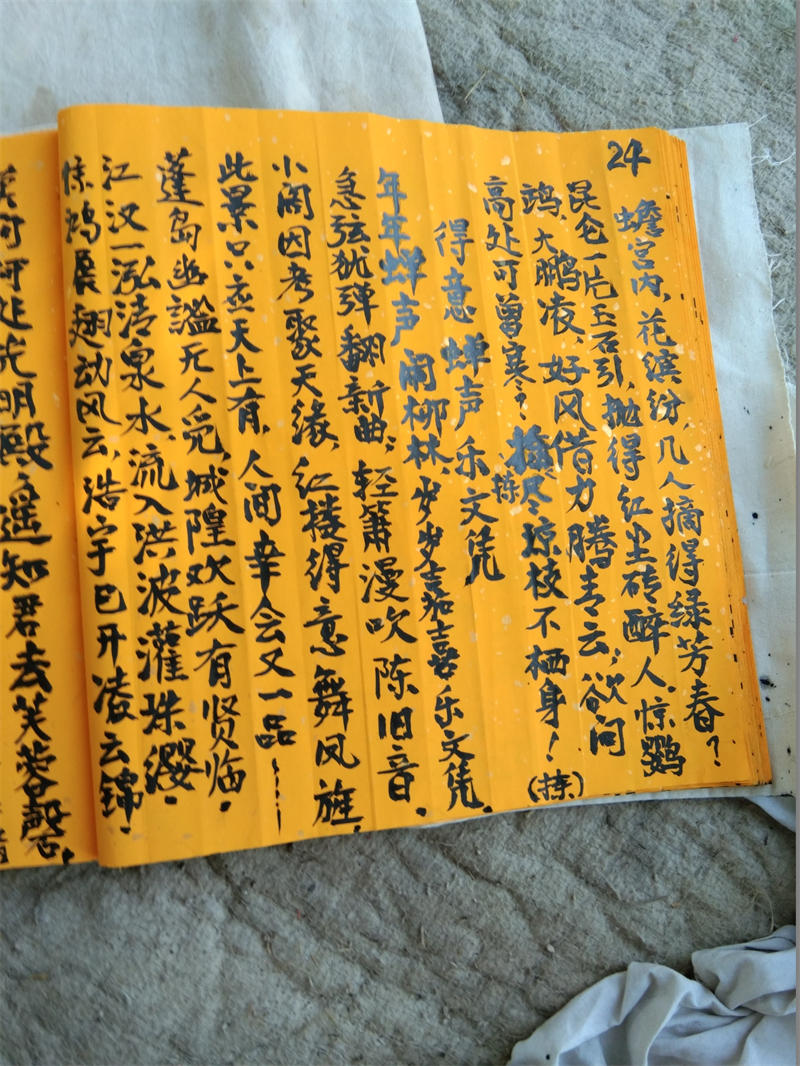 24
蟾宫内,花缤纷,几人摘得绿芳春?
昆仑一片玉石引,抛得红尘砖醉人.惊鹦
鹉,大鹏凌,好风借力腾青云;欲问
高处可曾寒?捡尽琼枝不栖身!
拣
(拣)
得意蝉声乐文凭
年年蝉声闹柳林,岁岁嘉喜乐文凭.
急弦犹弹翻新曲;轻箫漫吹陈旧音.
小阁因考聚天缘,红楼得意舞凤旌.
此景只应天上有,人间幸会又一品
蓬岛幽谧无人觅,城隍欢跃有贤临.
江汉一泓清泉水,流入洪波灌珠缨.
惊鸿展翅动风云,浩宇已开凌云锦.
何处光明殿,遥知君去芙蓉磬.